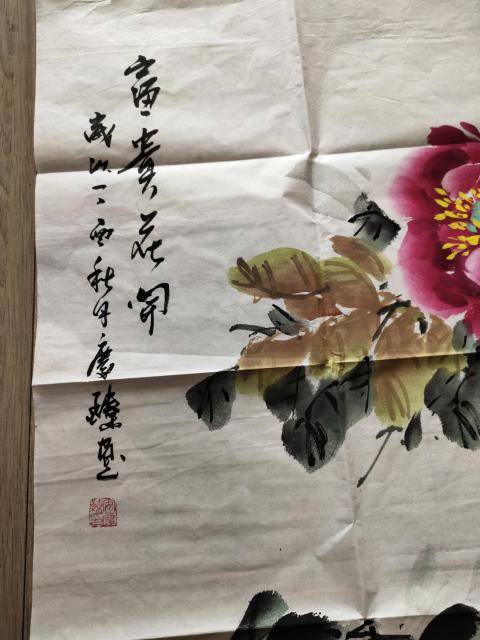 富貴花開
歲次丁酉秋月慶